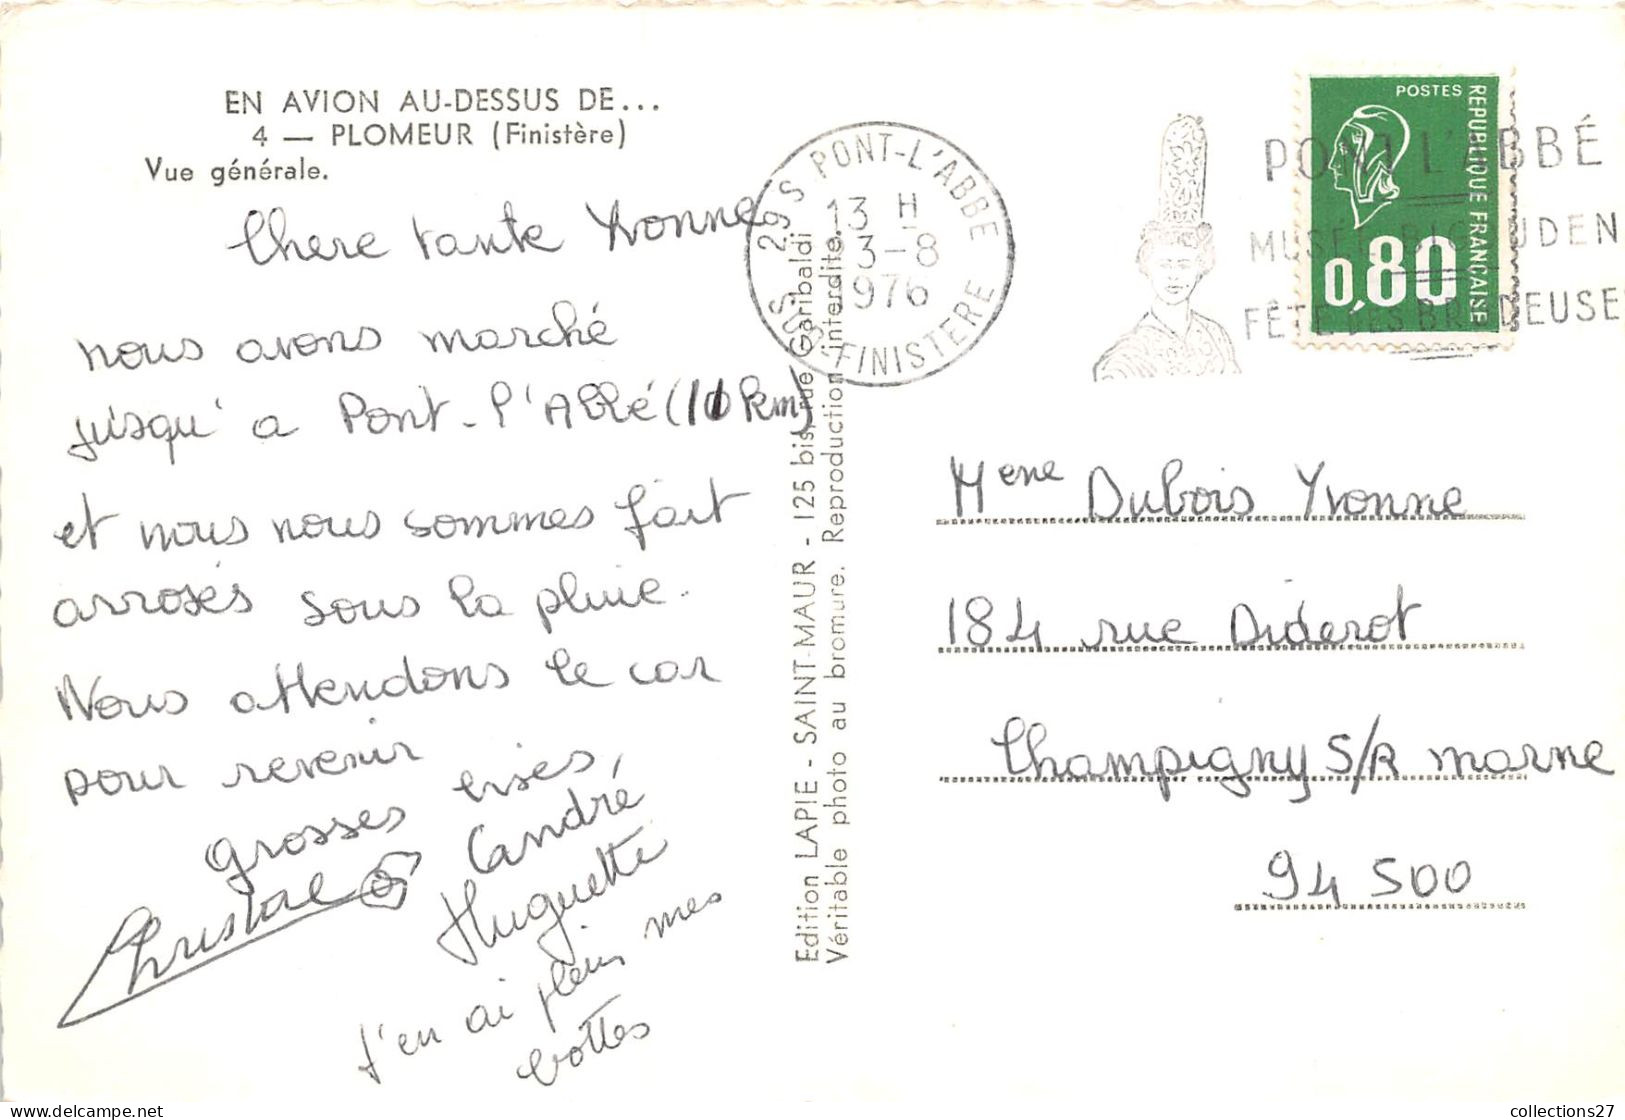 EN AVION AU-DESSUS DE...
4 — PLOMEUR (Finistère)
Vue générale.
Chere tante Yvonne
nous avons marché
jusqu'a Pont-l'Abbé (11 km)
et nous nous sommes fait
arrosés sous la pluie.
Nous attendons le car
pour revenir
grosses bises,
Christal
André
Huguette
J'en ai plein mes
bottes
Edition LAPIE - SAINT-MAUR - 125 bis, rue Garibaldi
Véritable photo au bromure. Reproduction interdite.
29 S PONT-L'ABBE
13 H
3-8
1976
SUD-FINISTERE
PONT L'ABBÉ
MUSÉE BIGOUDEN
FÊTE DES BRODEUSE
POSTES
REPUBLIQUE FRANÇAISE
0,80
Meme Dubois Yvonne
184 rue Diderot
Champigny S/R marne
94 500
collections27